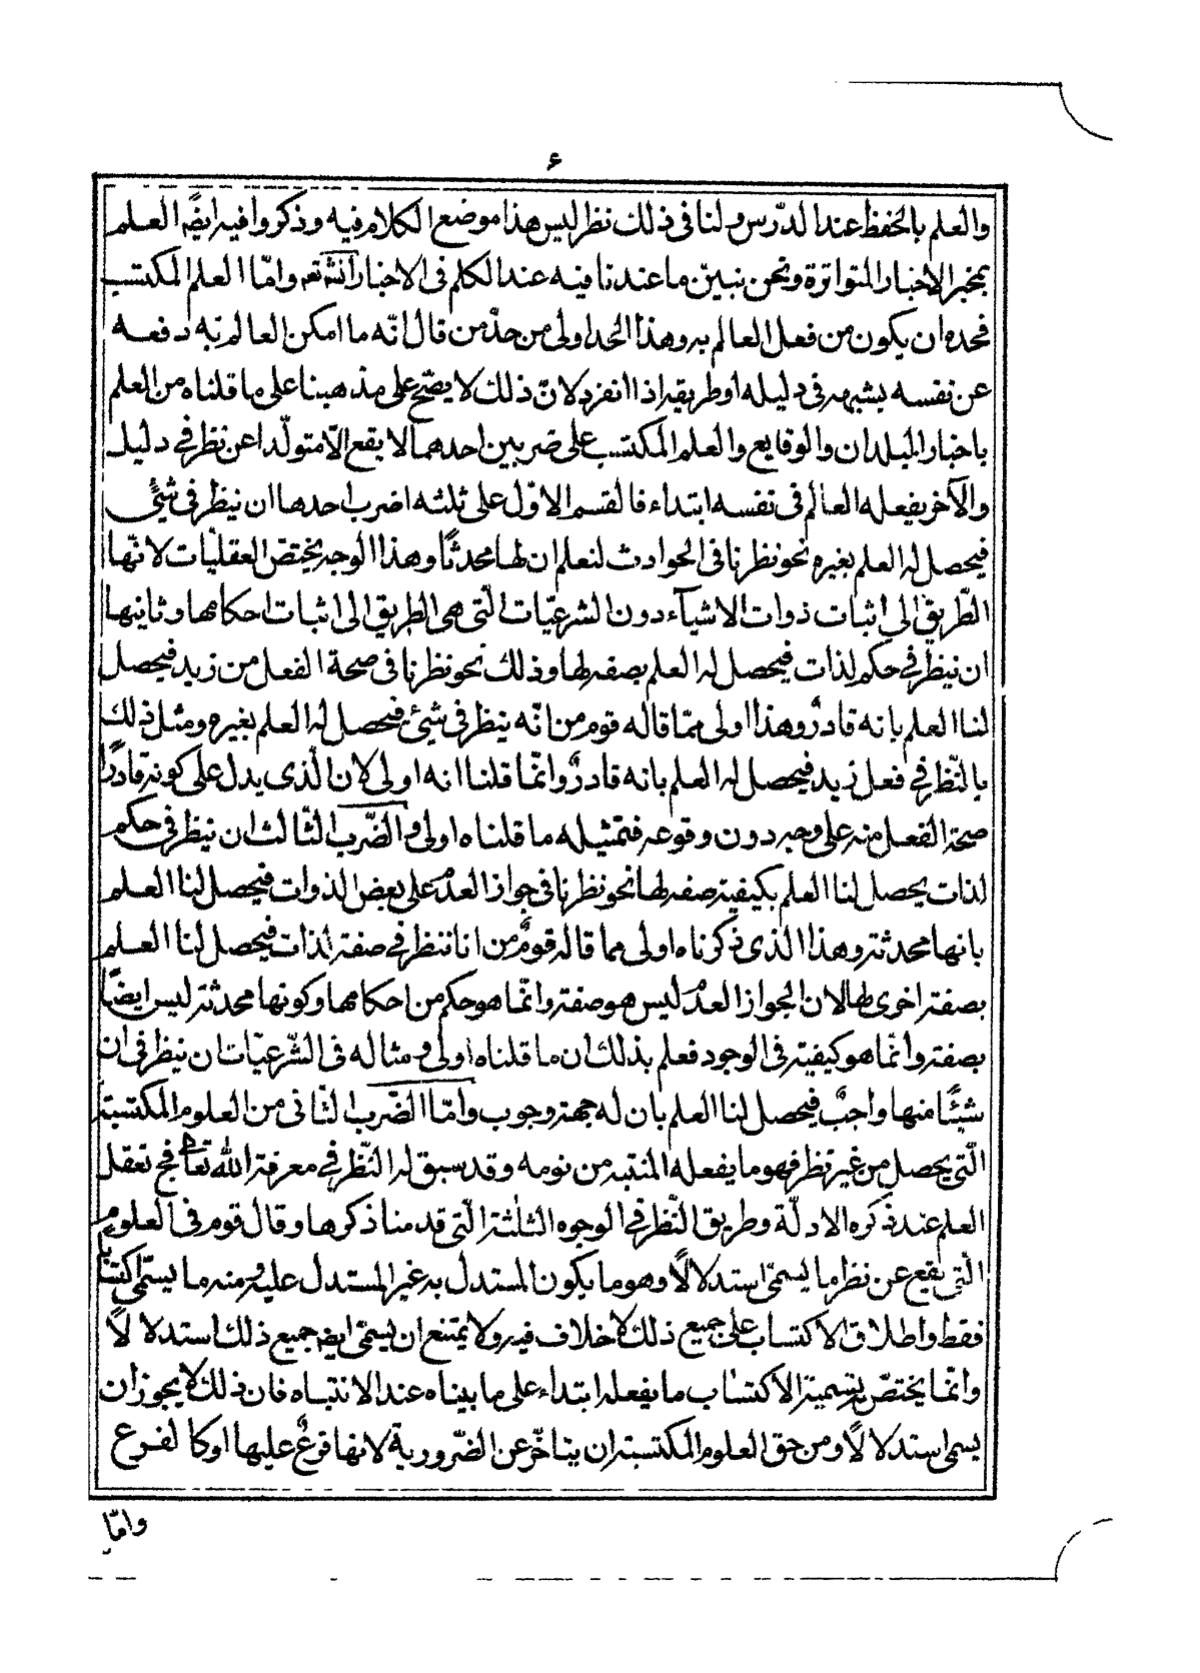 ۶
والعلم بالحفظ عند الدّرس ولنا فى ذلك نظر ليس هذا موضع الكلام فيه وذكروا فيه ايضًا العلم
بمخبر الاخبار المتواترة ونحن نبيّن ما عندنا فيه عند الكلم فى الاخبار انشاءتعه وامّا العلم المكتسب
فحده ان يكون من فعل العالم به وهذا الحد اولى من حدّ من قال انّه ما امكن العالم به دفعه
عن نفسه بشبهه فى دليله او طريقه اذا انفرد لانّ ذلك لا يصّح على مذهبنا على ما قلناه من العلم
باخبار البلدان والوقايع والعلم المكتسب على ضربين احدهما لا يقع الّا متولّدا عن نظر فى دليل
والآخر يفعله العالم فى نفسه ابتداء فالقسم الاوّل على ثلثه اضرب احدها ان نيظر فى شئٍ
فيحصل له العلم بغيره نحو نظرنا فى الحوادث لنعلم ان لها محدثًا وهذا الوجه يختصّ العقليّات لانّها
الطّريق الى اثبات ذوات الاشيآء دون الشرعيّات الّتى هى الطريق الى اثبات احكامها وثانيها
ان نيظر فى حكم لذات فيحصل له العلم بصفه لها وذلك نحو نظرنا فى صحة الفعل من زيد فيحصل
لنا العلم بانه قادرٌ وهذا اولى ممّا قاله قوم من انّه ينظر فى شئٍ فيحصل له العلم بغيره ومثل ذلك
بالنّظر فى فعل زيد فيحصل له العلم بانه قادرٌ وانّما قلنا انه اولى لان الّذى يدل على كونه قادرًا
صحة الفعل منه على وجه دون وقوعه فتمثيله ما قلناه اولى والضّرب الثّالث ان نيظر فى حكم
لذات يحصل لنا العلم بكيفية صفه لها نحو نظرنا فى جواز العدم على بعض الذوات فيحصل لنا العلم
بانها محدثة وهذا الذى ذكرناه اولى مما قاله قومٌ من انا ننظر فى صفة لذات فيحصل لنا العلم
بصفة اخرى لها لان الجواز العدم ليس هو صفة وانّما هو حكم من احكامها وكونها محدثة ليس ايضًا
بصفة وانّما هو كيفيّة فى الوجود فعلم بذلك ان ما قلناه اولى ومثاله فى الشّرعيّات ان نيظر فى ان
شيئًا منها واجبٌ فيحصل لنا العلم بان له جهة وجوب وامّا الضّرب الثّانى من العلوم المكتسبة
الّتى يحصل من غير نظر فهو ما يفعله المنتبه من نومه وقد سبق له النّظر فى معرفة الله تعالى فح تعقل
العلم عند ذكره الادلّة وطريق النّظر فى الوجوه الثلثة الّتى قدمنا ذكرها وقال قوم فى العلوم
الّتى يقع عن نظر ما يسمّى استدلالًا وهو ما يكون المستدل به غير المستدل عليه ومنه ما يسمّى اكتسابًا
فقط واطلاق الاكتساب على جميع ذلك لا خلاف فيه ولا يمتنع ان يسمّى ايضه جميع ذلك استدلالًا
وانّما يختصّ بتسمية الاكتساب ما يفعله ابتداء على ما بيناه عند الانتباه فان ذلك لا يجوز ان
يسمى استدلالًا ومن حق العلوم المكتسبة ان يتاخّر عن الضّرورية لانها فرعٌ عليها او كالفرع
وامّا